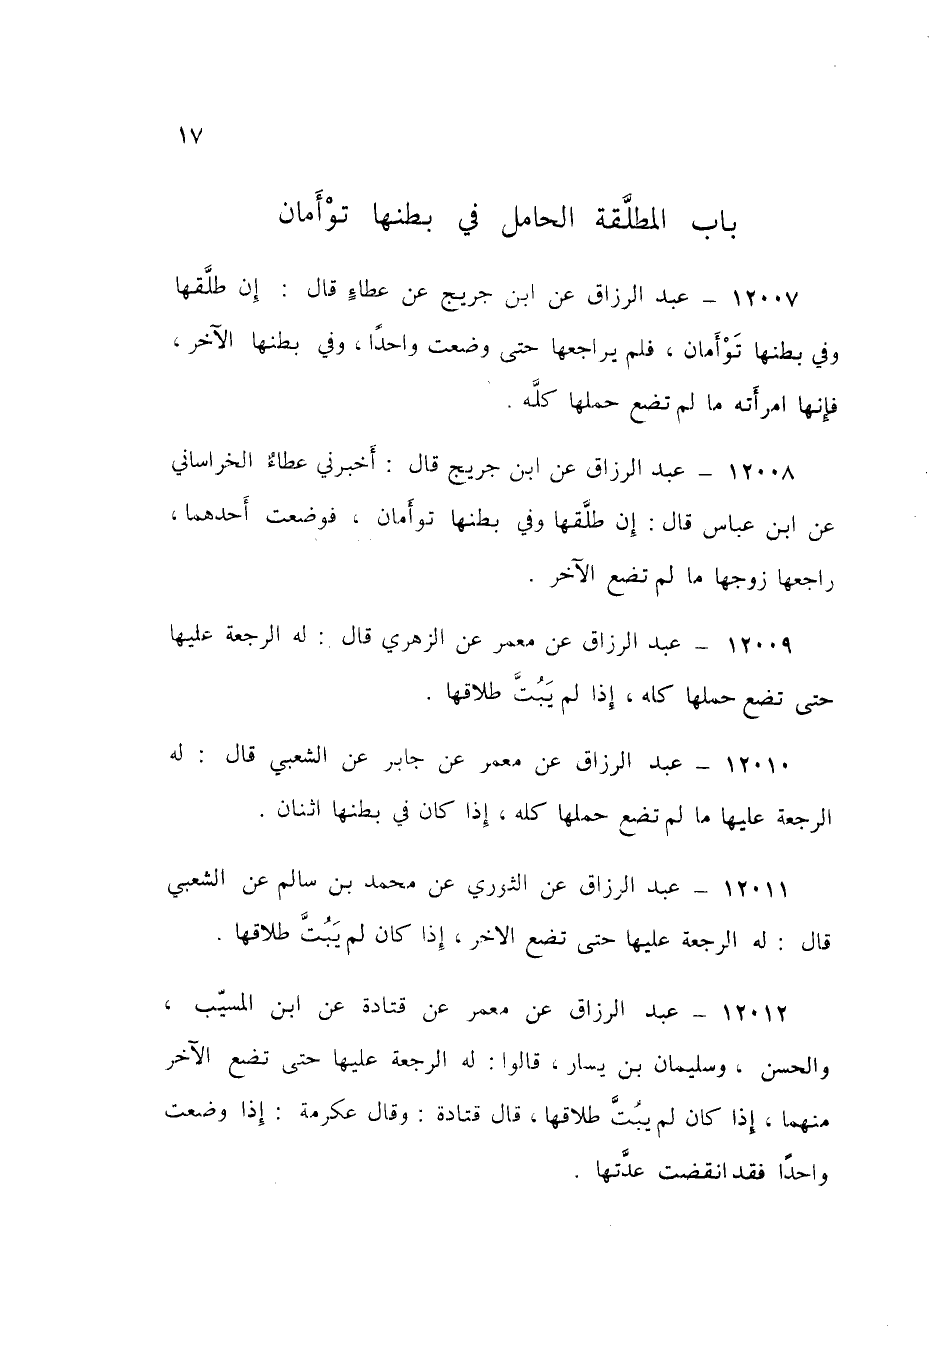 ١٧
باب المطلَّقة الحامل في بطنها توْأَمان
١٢٠٠٧ – عبد الرزاق عن ابن جريج عن عطاءٍ قال : إن طلَّقها
وفي بطنها تَوْأَمان ، فلم يراجعها حتى وضعت واحدًا ، وفي بطنها الآخر ،
فإنها امرأَته ما لم تضع حملها كلَّه .
١٢٠٠٨ – عبد الرزاق عن ابن جريج قال : أَخبرني عطاءٌ الخراساني
عن ابن عباس قال : إن طلَّقها وفي بطنها توأَمان ، فوضعت أَحدهما ،
راجعها زوجها ما لم تضع الآخر .
١٢٠٠٩ – عبد الرزاق عن معمر عن الزهري قال : له الرجعة عليها
حتى تضع حملها كله ، إذا لم يَبُتَّ طلاقها .
١٢٠١٠ – عبد الرزاق عن معمر عن جابر عن الشعبي قال : له
الرجعة عليها ما لم تضع حملها كله ، إذا كان في بطنها اثنان .
١٢٠١١ – عبد الرزاق عن الثوري عن محمد بن سالم عن الشعبي
قال : له الرجعة عليها حتى تضع الاخر ، إذا كان لم يَبُتَّ طلاقها .
١٢٠١٢ – عبد الرزاق عن معمر عن قتادة عن ابن المسيّب ،
والحسن ، وسليمان بن يسار ، قالوا : له الرجعة عليها حتى تضع الآخر
منهما ، إذا كان لم يبُتَّ طلاقها ، قال قتادة : وقال عكرمة : إذا وضعت
واحدًا فقد انقضت عدَّتها .